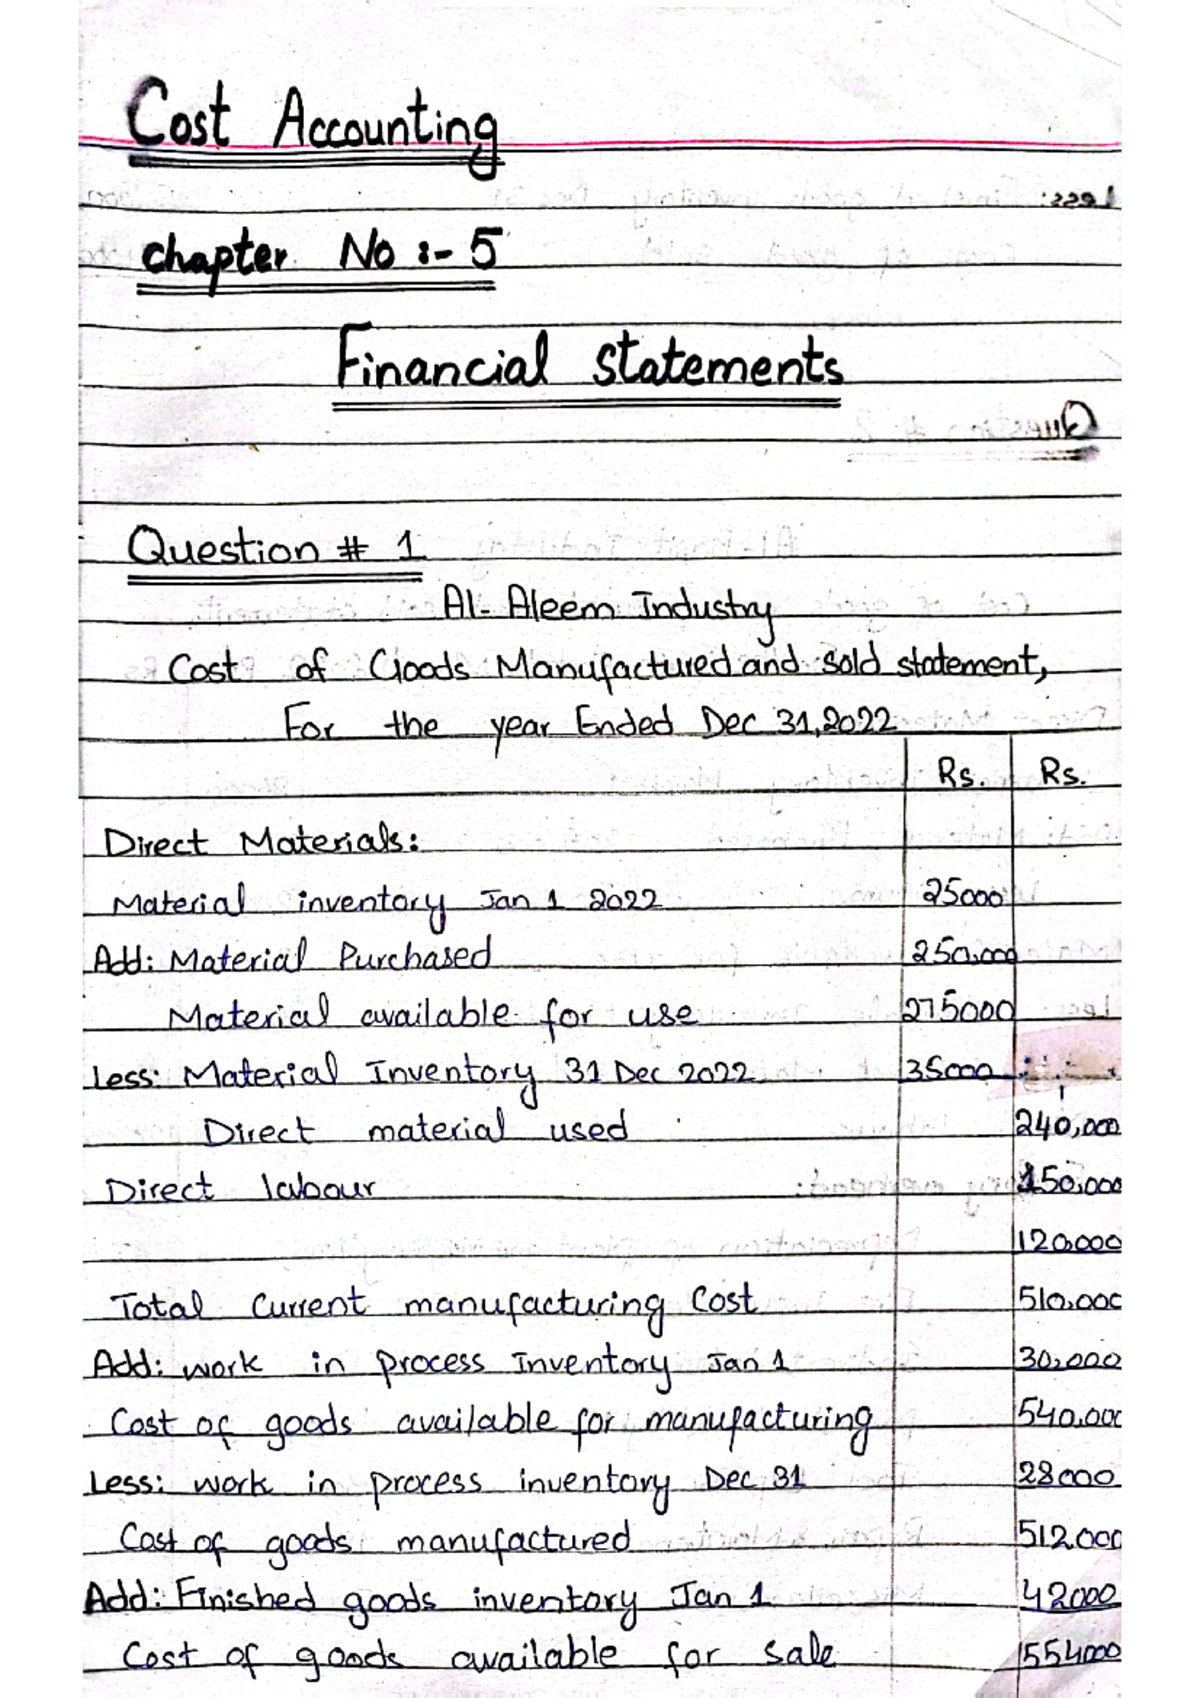 Cost Accounting
chapter No :- 5
Financial statements
Question # 1
Al- Aleem Industry
Cost of Goods Manufactured and sold statement,
For the year Ended Dec 31,2022
Rs. Rs.
Direct Materials:
Material inventory Jan 1 2022 25000
Add: Material Purchased 250,000
Material available for use 275000
Less: Material Inventory 31 Dec 2022 35000
Direct material used 240,000
Direct labour 150,000
120,000
Total Current manufacturing Cost 510,000
Add: work in process Inventory Jan 1 30,000
Cost of goods available for manufacturing 540,000
Less: work in process inventory Dec 31 28000
Cost of goods manufactured 512,000
Add: Finished goods inventory Jan 1 42000
Cost of goods available for sale 554000